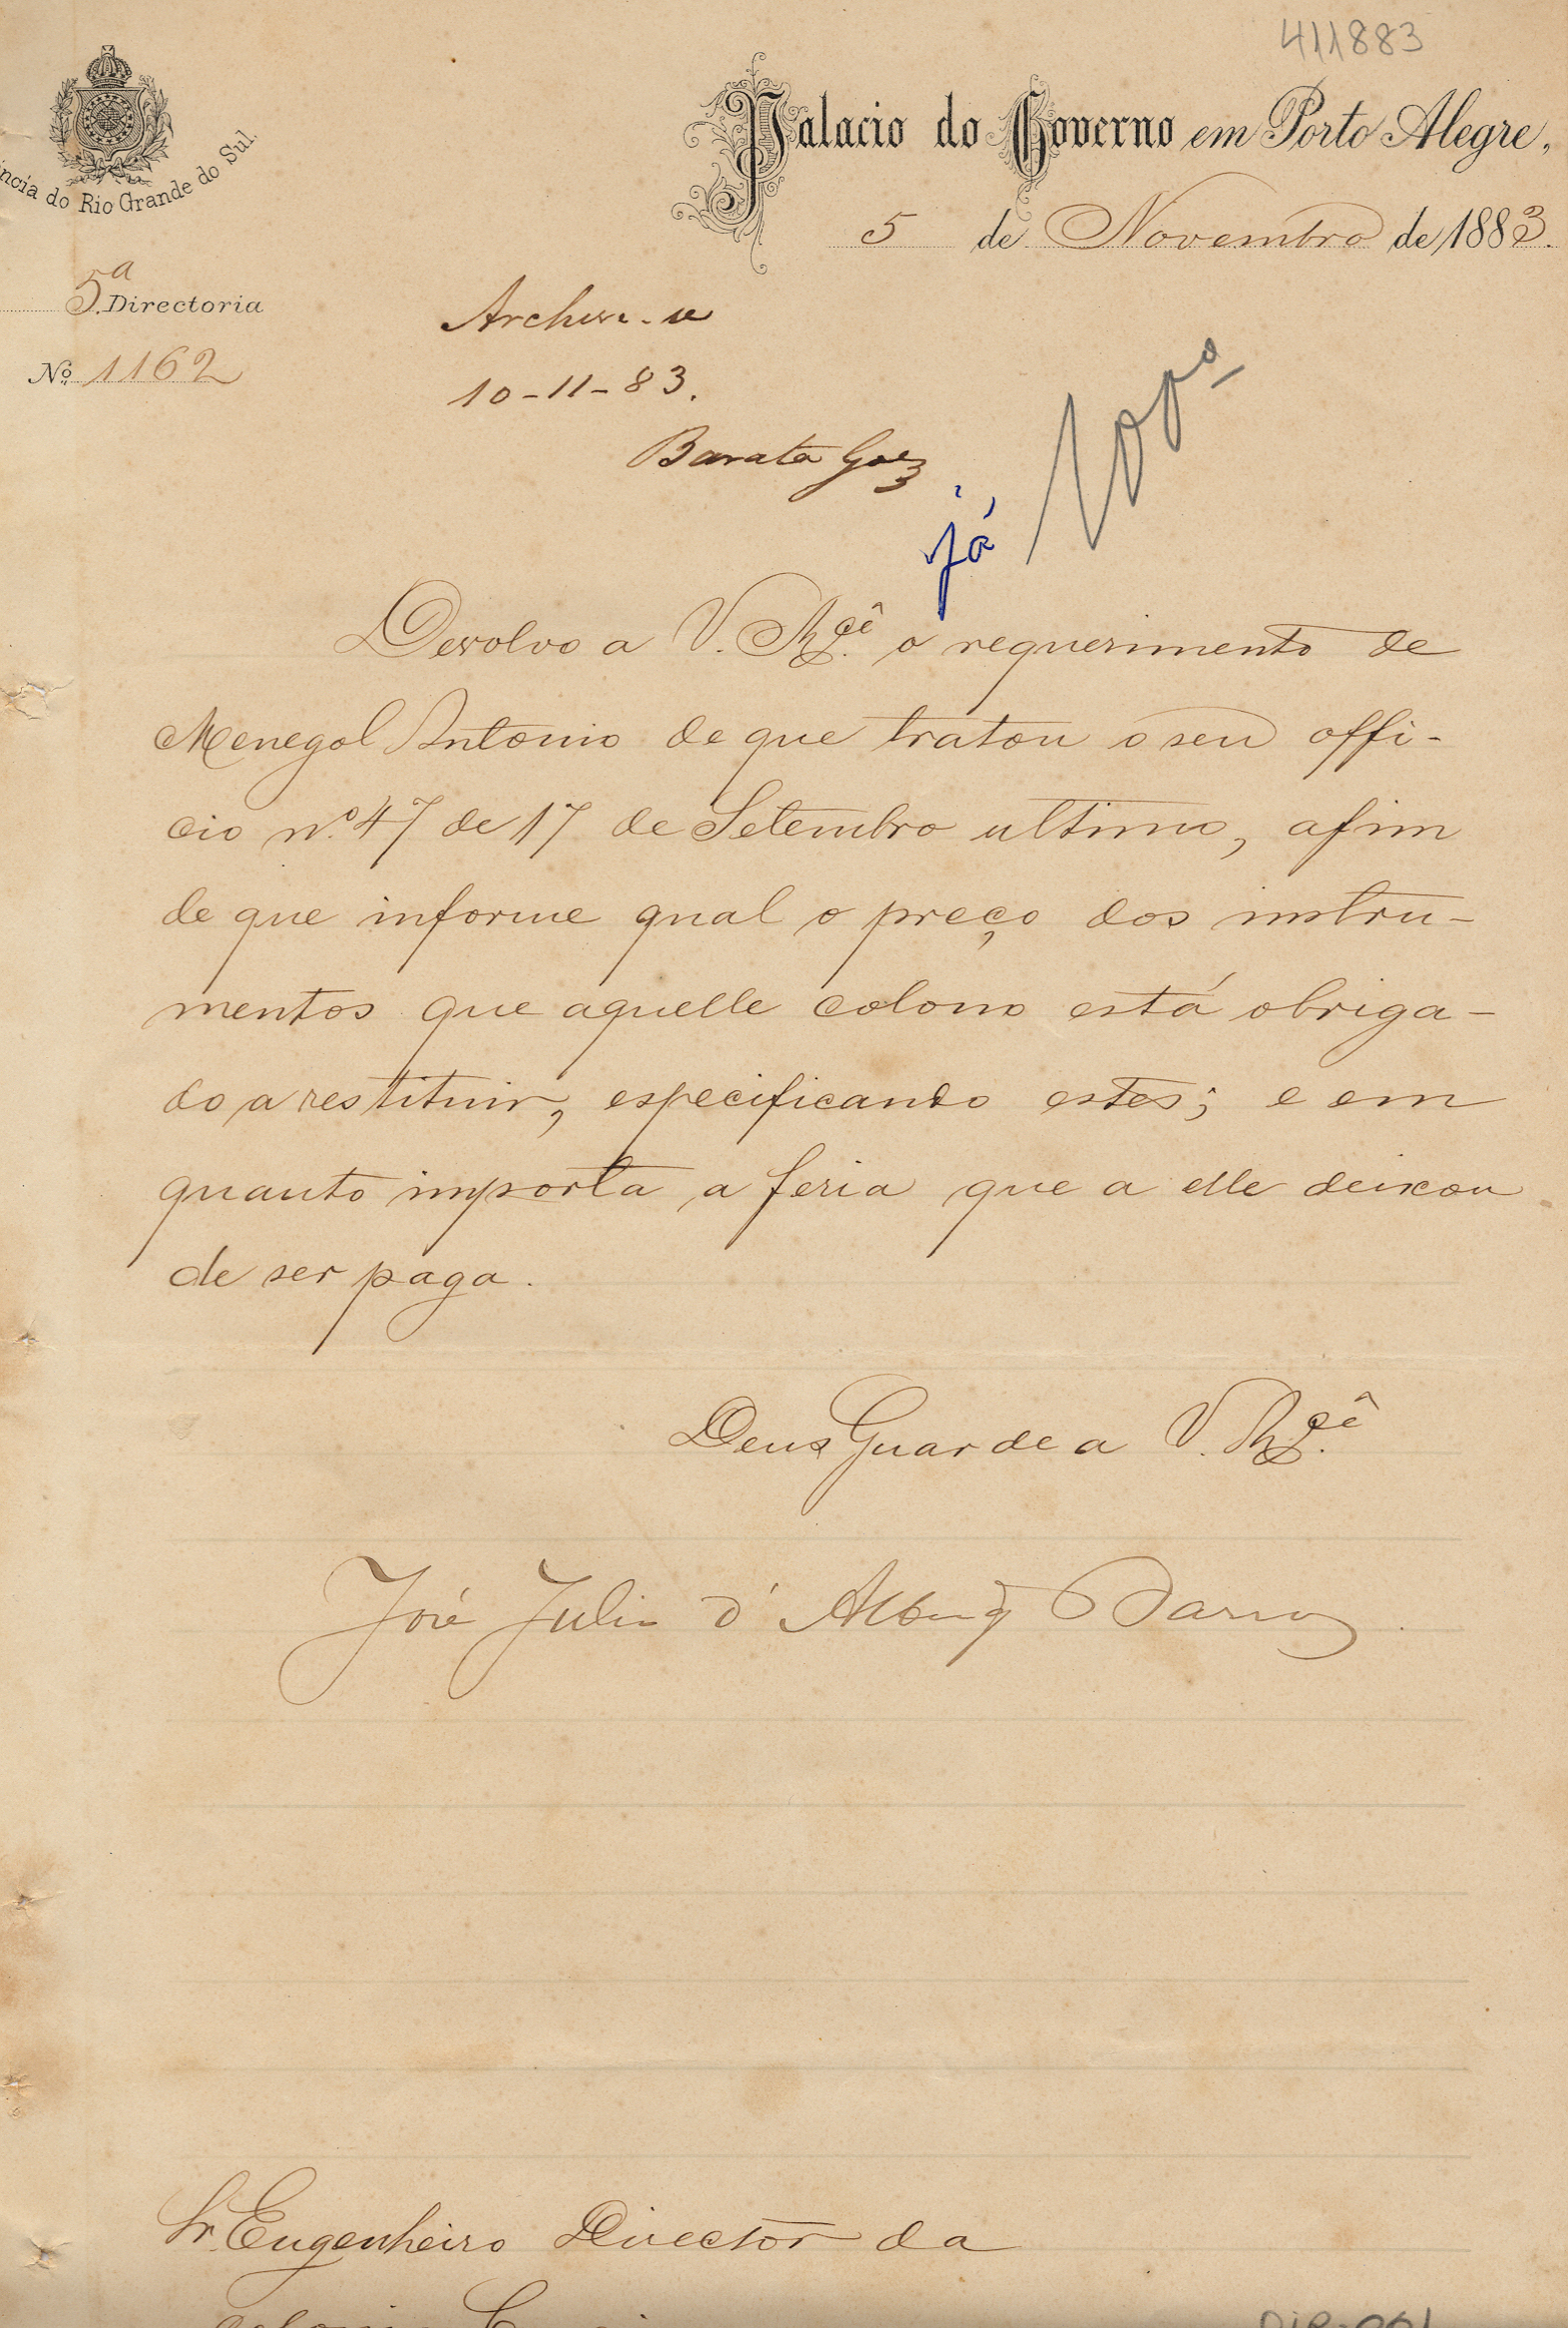 411883
Palacio do Governo em Porto Alegre,
5 de Novembro de 1883.
incia do Rio Grande do Sul.
5.ª Directoria
Nº 1162
Archive-se
10-11-83.
Barata Goes
já
Devolvo a V. M.cê o requerimento de
Menegol Antonio de que tratou o seu offi-
cio nº 47 de 17 de Setembro ultimo, afim
de que informe qual o preço dos instru-
mentos que aquelle colono está obriga-
do a restituir, especificando estes; e em
quanto importa a feria que a elle deixou
de ser paga.
Deus Guarde a V. M.cê
José Julio d'Albuq Barros.
Sr. Engenheiro Director da